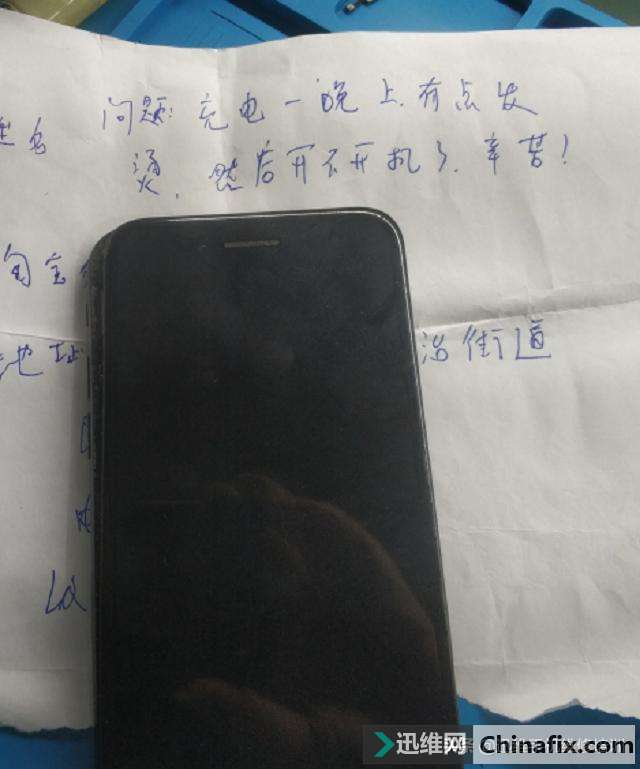 问题:充电一晚上.有点发
烫.然后开不开机了.辛苦!
名
淘宝
地址
沿街道
迅维网
Chinafix.com